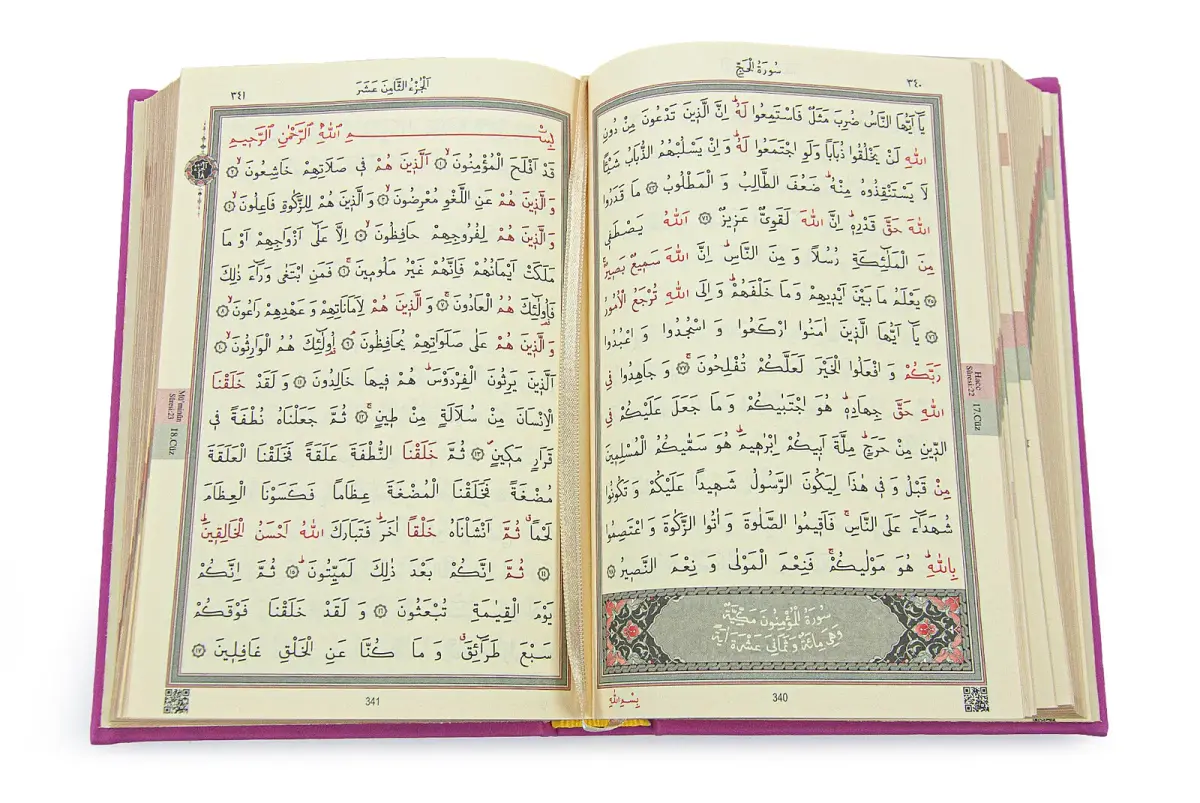 سُورَةُ الْحَجِّ
٣٤٠
يَا اَيُّهَا النَّاسُ ضُرِبَ مَثَلٌ فَاسْتَمِعُوا لَهُ اِنَّ الَّذٖينَ تَدْعُونَ مِنْ دُونِ
اللّٰهِ لَنْ يَخْلُقُوا ذُبَابًا وَلَوِ اجْتَمَعُوا لَهُ وَاِنْ يَسْلُبْهُمُ الذُّبَابُ شَيْـًٔا
لَا يَسْتَنْقِذُوهُ مِنْهُ ضَعُفَ الطَّالِبُ وَ الْمَطْلُوبُ ﴿٧٣﴾ مَا قَدَرُوا
اللّٰهَ حَقَّ قَدْرِهٖ اِنَّ اللّٰهَ لَقَوِىٌّ عَزٖيزٌ ﴿٧٤﴾ اَللّٰهُ يَصْطَفٖى
مِنَ الْمَلٰٓئِكَةِ رُسُلًا وَ مِنَ النَّاسِ اِنَّ اللّٰهَ سَمٖيعٌ بَصٖيرٌ
﴿٧٥﴾ يَعْلَمُ مَا بَيْنَ اَيْدٖيهِمْ وَ مَا خَلْفَهُمْ وَ اِلَى اللّٰهِ تُرْجَعُ الْاُمُورُ
﴿٧٦﴾ يَا اَيُّهَا الَّذٖينَ اٰمَنُوا ارْكَعُوا وَ اسْجُدُوا وَ اعْبُدُوا
رَبَّكُمْ وَ افْعَلُوا الْخَيْرَ لَعَلَّكُمْ تُفْلِحُونَ ﴿٧٧﴾ وَ جَاهِدُوا فِى
اللّٰهِ حَقَّ جِهَادِهٖ هُوَ اجْتَبٰيكُمْ وَ مَا جَعَلَ عَلَيْكُمْ فِى
الدّٖينِ مِنْ حَرَجٍ مِلَّةَ اَبٖيكُمْ اِبْرٰهٖيمَ هُوَ سَمّٰيكُمُ الْمُسْلِمٖينَ
مِنْ قَبْلُ وَ فٖى هٰذَا لِيَكُونَ الرَّسُولُ شَهٖيدًا عَلَيْكُمْ وَ تَكُونُوا
شُهَدَٓاءَ عَلَى النَّاسِ فَاَقٖيمُوا الصَّلٰوةَ وَ اٰتُوا الزَّكٰوةَ وَ اعْتَصِمُوا
بِاللّٰهِ هُوَ مَوْلٰيكُمْ فَنِعْمَ الْمَوْلٰى وَ نِعْمَ النَّصٖيرُ ﴿٧٨﴾
سُورَةُ الْمُؤْمِنُونَ مَكِّيَّةٌ
وَهِىَ مِائَةٌ وَ ثَمَانِىَ عَشْرَةَ اٰيَةً
بِسْمِ اللّٰهِ
340
Hacc
Sûresi:22
17.Cüz
اَلْجُزْءُ الثَّامِنَ عَشَرَ
٣٤١
بِسْمِ اللّٰهِ الرَّحْمٰنِ الرَّحٖيمِ
قَدْ اَفْلَحَ الْمُؤْمِنُونَ ﴿١﴾ اَلَّذٖينَ هُمْ فٖى صَلَاتِهِمْ خَاشِعُونَ ﴿٢﴾
وَالَّذٖينَ هُمْ عَنِ اللَّغْوِ مُعْرِضُونَ ﴿٣﴾ وَالَّذٖينَ هُمْ لِلزَّكٰوةِ فَاعِلُونَ ﴿٤﴾
وَالَّذٖينَ هُمْ لِفُرُوجِهِمْ حَافِظُونَ ﴿٥﴾ اِلَّا عَلٰٓى اَزْوَاجِهِمْ اَوْ مَا
مَلَكَتْ اَيْمَانُهُمْ فَاِنَّهُمْ غَيْرُ مَلُومٖينَ ﴿٦﴾ فَمَنِ ابْتَغٰى وَرَٓاءَ ذٰلِكَ
فَاُولٰٓئِكَ هُمُ الْعَادُونَ ﴿٧﴾ وَ الَّذٖينَ هُمْ لِاَمَانَاتِهِمْ وَ عَهْدِهِمْ رَاعُونَ ﴿٨﴾
وَالَّذٖينَ هُمْ عَلٰى صَلَوَاتِهِمْ يُحَافِظُونَ ﴿٩﴾ اُولٰٓئِكَ هُمُ الْوَارِثُونَ ﴿١٠﴾
اَلَّذٖينَ يَرِثُونَ الْفِرْدَوْسَ هُمْ فٖيهَا خَالِدُونَ ﴿١١﴾ وَ لَقَدْ خَلَقْنَا
الْاِنْسَانَ مِنْ سُلَالَةٍ مِنْ طٖينٍ ﴿١٢﴾ ثُمَّ جَعَلْنَاهُ نُطْفَةً فٖى
قَرَارٍ مَكٖينٍ ﴿١٣﴾ ثُمَّ خَلَقْنَا النُّطْفَةَ عَلَقَةً فَخَلَقْنَا الْعَلَقَةَ
مُضْغَةً فَخَلَقْنَا الْمُضْغَةَ عِظَامًا فَكَسَوْنَا الْعِظَامَ
لَحْمًا ثُمَّ اَنْشَاْنَاهُ خَلْقًا اٰخَرَ فَتَبَارَكَ اللّٰهُ اَحْسَنُ الْخَالِقٖينَ
﴿١٤﴾ ثُمَّ اِنَّكُمْ بَعْدَ ذٰلِكَ لَمَيِّتُونَ ﴿١٥﴾ ثُمَّ اِنَّكُمْ
يَوْمَ الْقِيٰمَةِ تُبْعَثُونَ ﴿١٦﴾ وَ لَقَدْ خَلَقْنَا فَوْقَكُمْ
سَبْعَ طَرَٓائِقَ وَ مَا كُنَّا عَنِ الْخَلْقِ غَافِلٖينَ ﴿١٧﴾
341
Mü'minûn
Sûresi:23
18.Cüz